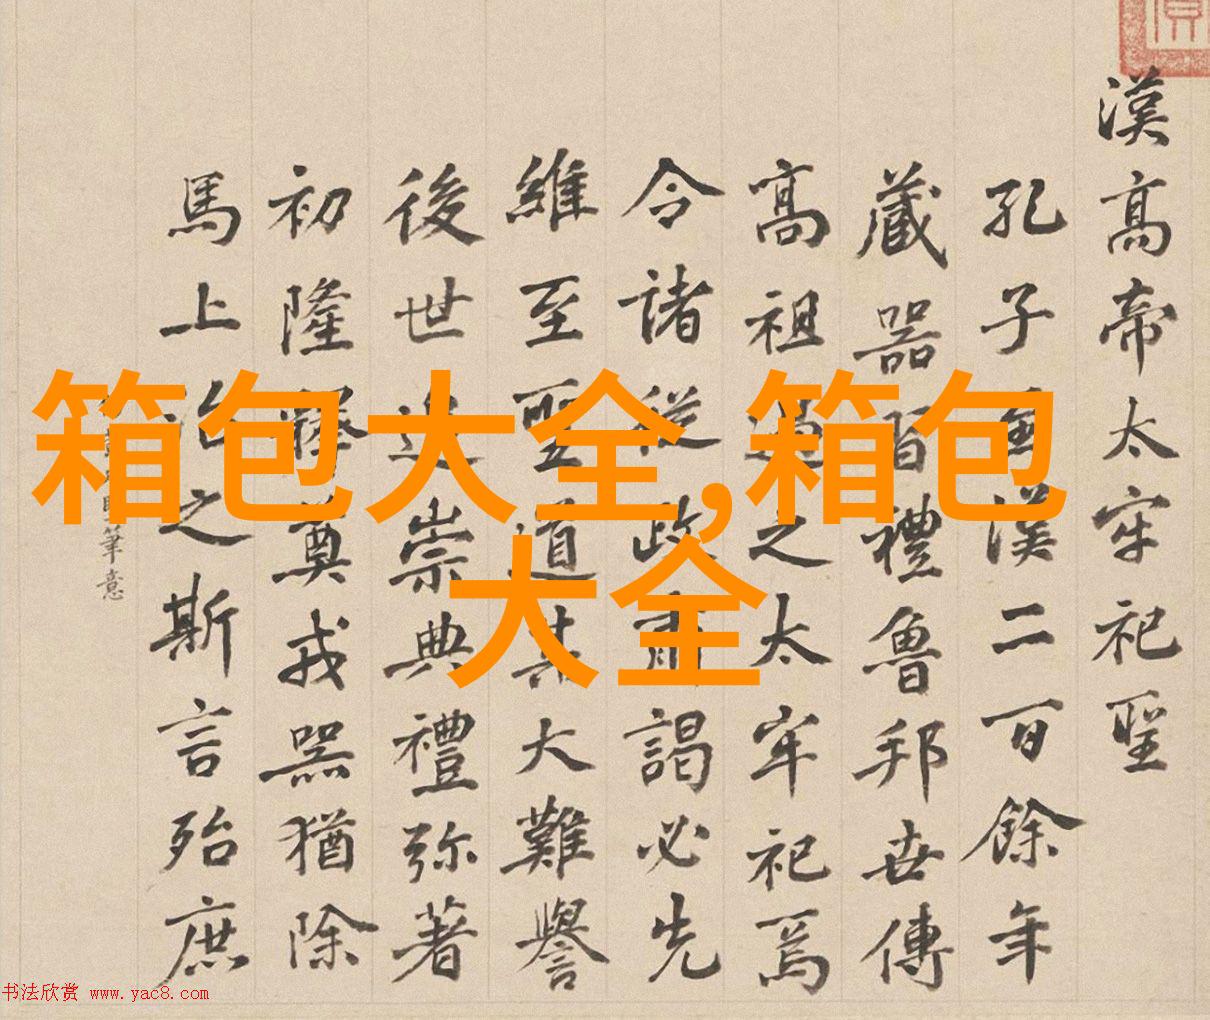 漢高帝太牢祀聖
孔子漢二百餘年
藏器習禮魯邦世傳
高祖過之太牢祀焉
令諸從政謁必先
維至聖道其大難譽
後世追崇典禮弥著
初隆釋奠戎器猶除
馬上治之斯言殆庶
筆意
箱包大全,箱包
大全
书法欣赏 www.yac8.com